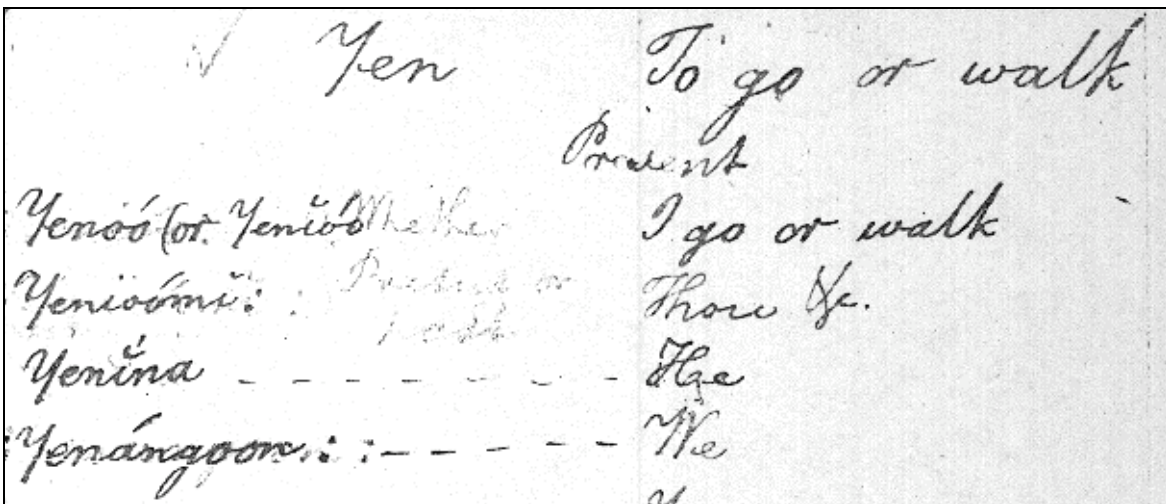 Yen To go or walk
Present
Yenoó (or. Yenĭoó Whether I go or walk
Yenioómi: : Present or Thou &c.
past
Yenĭna - - - - - - - He
Yenángoon.: :- - - - - We